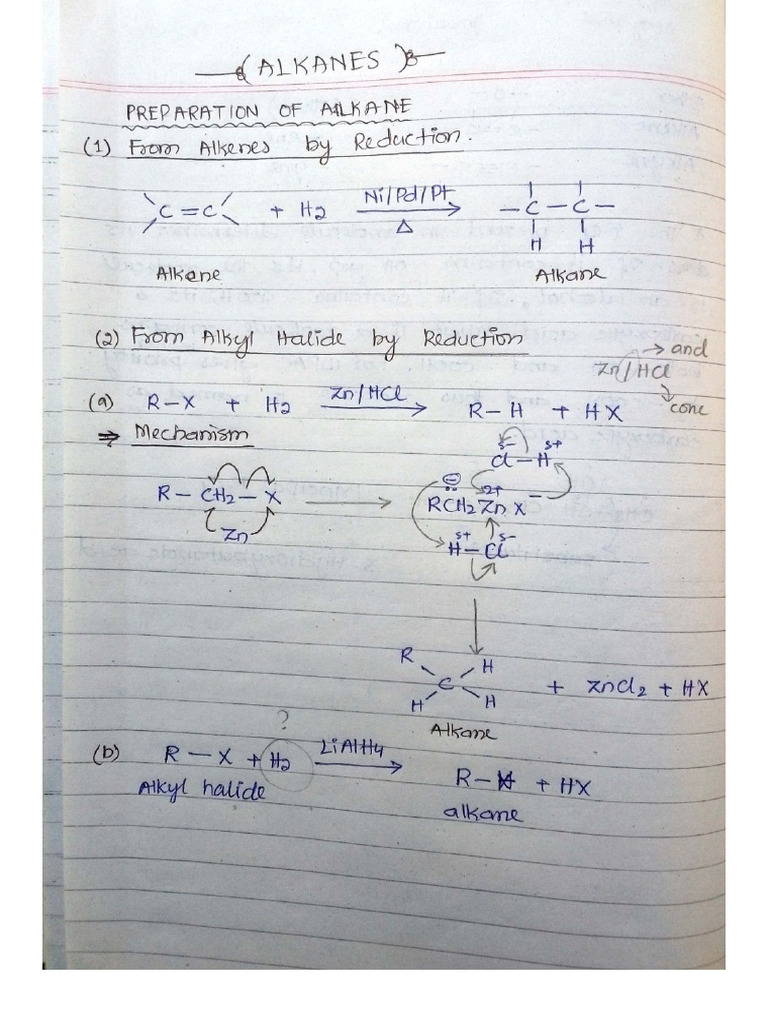 ALKANES
PREPARATION OF ALKANE
(1) From Alkenes by Reduction.
C=C + H2 Ni/Pd/Pt Δ -C-C-
H H
Alkene Alkane
(2) From Alkyl Halide by Reduction
→ and
Zn/HCl
conc
(a) R-X + H2 Zn/HCl → R-H + HX
⇒ Mechanism
δ- δ+
Cl-H
R-CH2-X → RCH2 Zn2+ X-
Zn
δ+ δ-
H-Cl
R H
C + ZnCl2 + HX
H H
Alkane
?
(b) R-X + H2 LiAlH4 → R-H + HX
Alkyl halide alkane